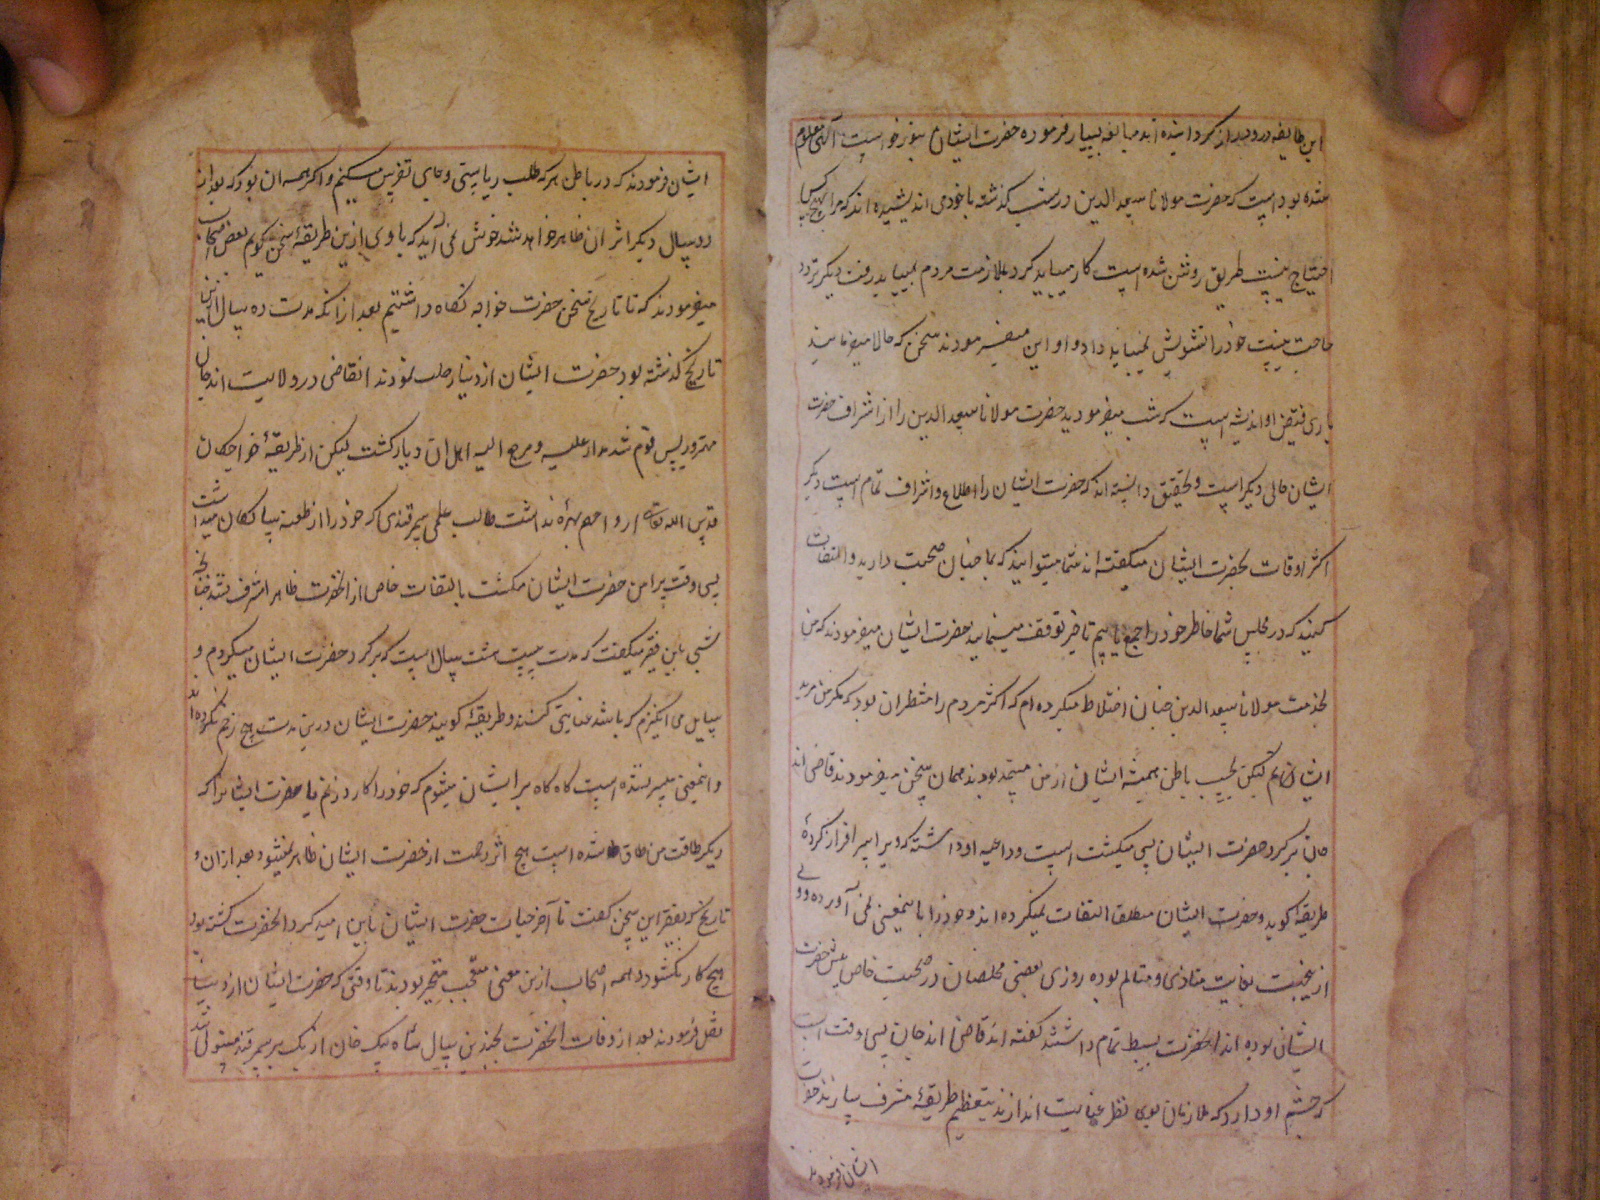 این طایفه در وی اثر کرده اند مبالغه بسیار فرموده حضرت ایشان
شده بوده است که حضرت مولانا سعد الدین در شب گذشته با خود می اندیشیده اند که مرا بهیچ کس
احتیاج نیست طریق روشن شده است کار میباید کرد بملازمت مردم نمیباید رفت دیگر تردد
حاجت نیست خود را تشویش نمیباید داد و او این سخن که حالا میفرمایند
اندیشه است که شب میفرمودید حضرت مولانا سعد الدین را از اشراف حضرت
ایشان حالی دیگر است و بتحقیق دانسته اند که حضرت ایشان را اطلاع و اشراف تمام است دیگر
اکثر اوقات بحضرت ایشان میگفته اند شما میتوانید که بما چنان صحبت دارید و التفات
کنید که در مجلس شما خاطر خود را جمع یابیم تاخیر و توقف مینمایید حضرت ایشان میفرمودند که من
بخدمت مولانا سعد الدین چنان اختلاط میکرده ام که اکثر مردم را مظنه آن بود که مگر من مرید
ایشان ام لیکن بحسب باطن همیشه ایشان از من مستمد بودند همان سخن میفرمودند قاضی اند
جانی بر گرد حضرت ایشان بسی میگشت است و داعیه او داشته که ویرا سرافراز کرده
طریقه گوید و حضرت ایشان مطلقا التفات نمیکرده اند و خود را باینمعنی نمی آورده و وی
از این جهت بغایت متاذی و متالم بوده روزی بعضی مخلصان در صحبت خاص پیش حضرت
ایشان بوده اند آنحضرت بسط تمام داشتند گفته اند قاضی اند جان بسی وقت است
که چشم او دارد که ملازمان بوی نظر عنایت اندازند بتعظیم طریقه مشرف سازند حضرت
ایشان فرمودند
ایشان فرمودند که در باطن هر که طلب ریاستی و جاهی تفرس میکنیم و اگر همه آن بود که بعد از
ده سال دیگر اثر آن ظاهر خواهد شد خوش نمی آید که با وی ازین طریقه سخن گویم بعض اصحاب
میفرمودند که تا تاریخ سخن حضرت خواجه نگاه داشتیم بعد از آنکه مدت ده سال ازین
تاریخ گذشته بود حضرت ایشان از دنیا رحلت نمودند آن قاضی در ولایت اندجان
مهتر و رئیس قوم شد و مدار علیه و مرجع الیه اهل آن دیار گشت لیکن از طریقه خواجگان
قدس الله تعالی ارواحهم بهره نداشت طالب علمی سمرقندی که خود را از طلبه پیا کهان میداشت
بسی وقت پیرامن حضرت ایشان میگشت بالتفات خاص از آنحضرت ظاهرا مشرف نشد چنانچه
شبی باین فقیر میگفت که مدت بیست هشت سال است که بر گرد حضرت ایشان میگردم و
وسایل می انگیزم که باشد عنایتی کنند و طریقه گویند حضرت ایشان درین مدت هیچ رحم نکرده اند
و اینمعنی میسر نشده است گاه گاه بر ایشان میشوم که خود را کارد زنم یا حضرت ایشانرا که
دیگر طاقت من طاق شده است هیچ اثر رحمت از حضرت ایشان ظاهر نمیشود بعد از آن و
تاریخ که بفقیر این سخن گفت تا آخر حیات حضرت ایشان باین امید گرد آنحضرت گشته بود
هیچ کار نگشود و همه اصحاب ازین معنی متعجب و متحیر بودند تا وقتی که حضرت ایشان از دنیا
نقل فرمودند بعد از وفات آنحضرت بچندین سال شاه بیک خان ازبک بر سمرقند مستولی شد